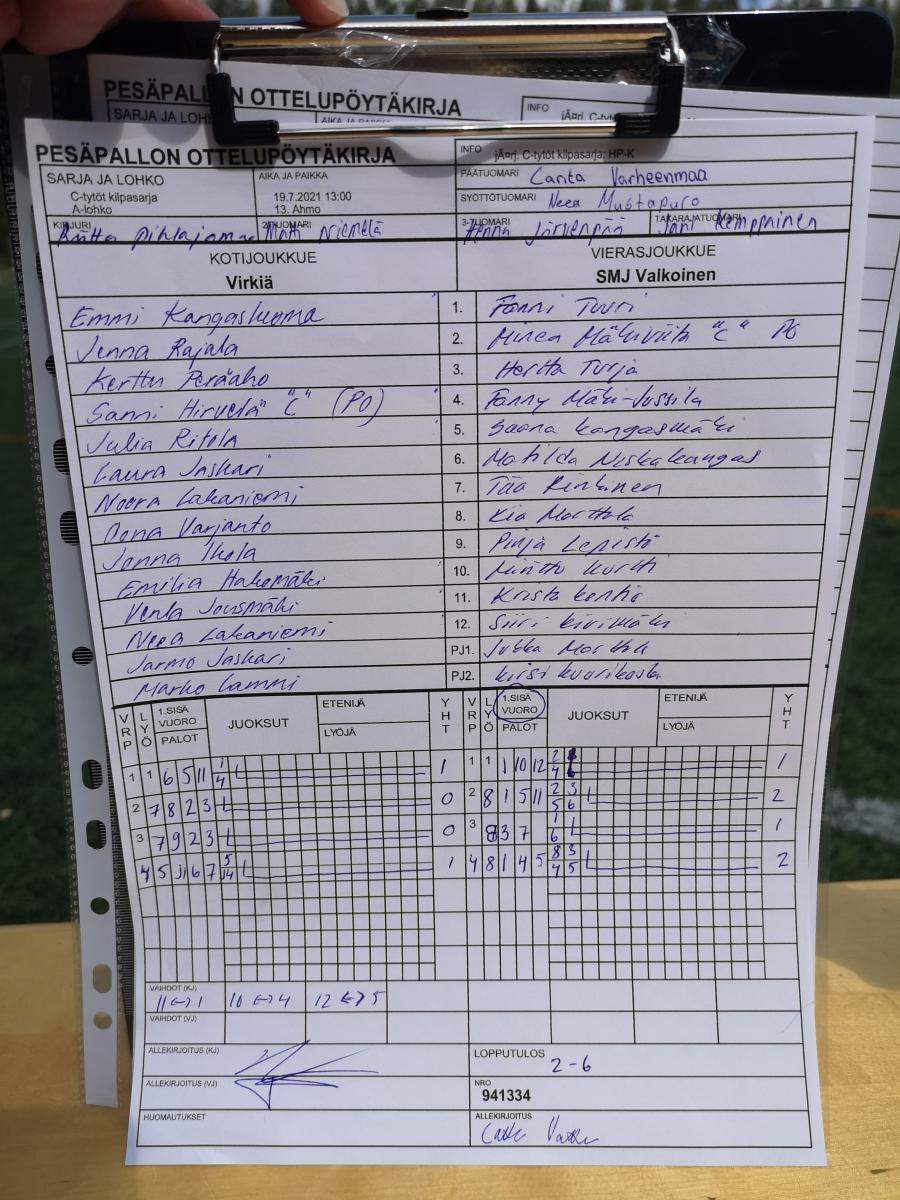 PESÄPALLON OTTELUPÖYTÄKIRJA
INFO
SARJA JA LOHKO
PESÄPALLON OTTELUPÖYTÄKIRJA
INFO jÄ¤rj. C-tytöt kilpasarja: HP-K
SARJA JA LOHKO
C-tytöt kilpasarja
A-lohko
AIKA JA PAIKKA
19.7.2021 13:00
13. Ahmo
PÄÄTUOMARI Carita Varheenmaa
SYÖTTÖTUOMARI Neea Mustapuro
KIRJURI Riitta Pihlajamaa
2-TUOMARI Matti Niemelä
3-TUOMARI Henna Järvenpää
TAKARAJATUOMARI Jani Kemppninen
KOTIJOUKKUE
Virkiä
VIERASJOUKKUE
SMJ Valkoinen
Emmi Kangasluoma 1. Fanni Tuuri
Jenna Rajala 2. Minea Mäkiviita "C" PO
Kerttu Peräaho 3. Hertta Turja
Sanni Hirvelä "C" (PO) 4. Fanny Mäki-Jussila
Julia Ritola 5. Saana Kangasmäki
Laura Jaskari 6. Matilda Niskakangas
Noora Lakaniemi 7. Tiia Rintanen
Oona Varjanto 8. Kia Marttala
Jonna Ikola 9. Pinja Lepistö
Emilia Hakomäki 10. Minttu Kortti
Venla Jousmäki 11. Krista Kentta
Neea Lakaniemi 12. Siiri Kivimäki
Jarmo Jaskari PJ1. Jukka Marttala
Marko Lammi PJ2. Kirsi Kuorikoski
VRP LYÖ 1.SISÄ VUORO PALOT JUOKSUT ETENIJÄ LYÖJÄ YHT VRP LYÖ 1.SISÄ VUORO PALOT JUOKSUT ETENIJÄ LYÖJÄ YHT
1 1 6 5 11 1/4 1 1 1 1 10 12 2/4 1
2 7 8 2 3 0 2 8 1 5 11 2/5 3/6 2
3 7 9 2 3 0 3 8 3 7 1/6 1
4 5 11 6 7 5/14 1 4 8 1 4 5 8/4 3/5 2
VAIHDOT (KJ)
11 <-> 1 10 <-> 4 12 <-> 5
VAIHDOT (VJ)
ALLEKIRJOITUS (KJ)
LOPPUTULOS
2-6
ALLEKIRJOITUS (VJ)
NRO
941334
HUOMAUTUKSET
ALLEKIRJOITUS